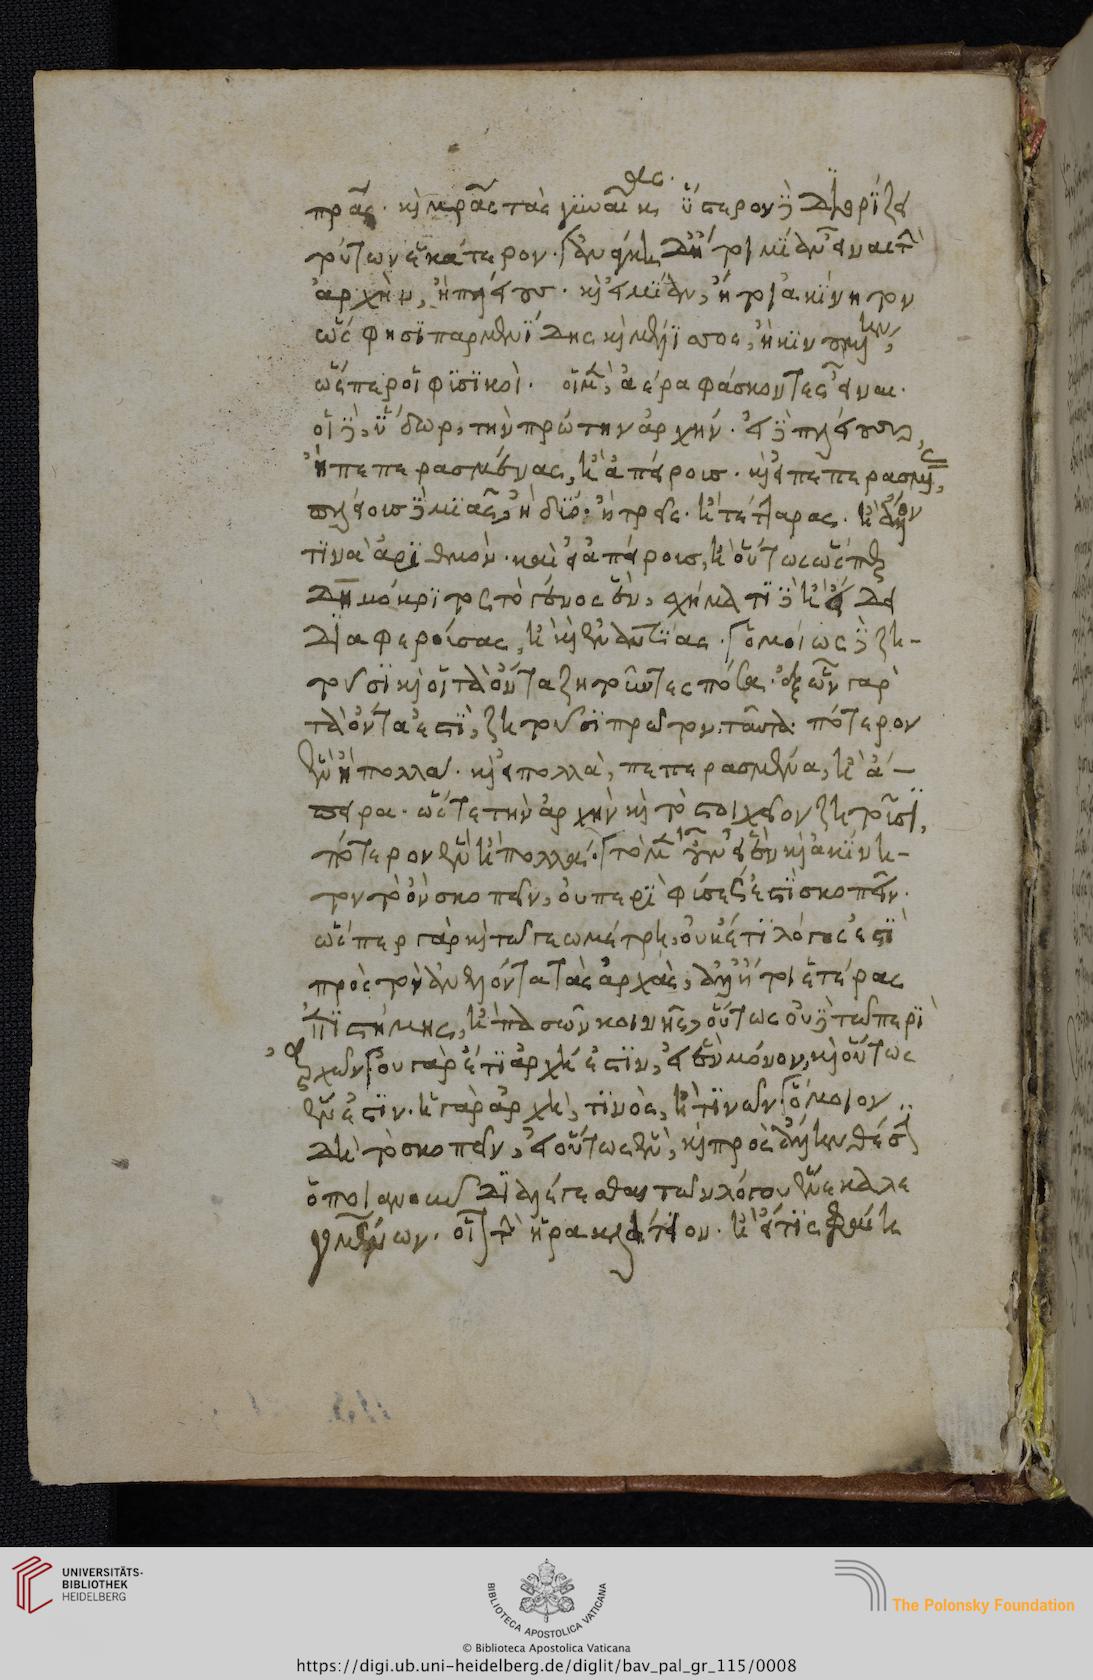 πρας· καὶ μρας τὰς γυναῖκας ὕστερον δὲ διορίζει
τούτων ἑκάτερον· ἀνάγκη δ' ἤτοι μίαν εἶναι τὴν
ἀρχὴν, ἢ πλείους· καὶ εἰ μίαν, ἤτοι ἀκίνητον
ὥς φησι παρμενίδης καὶ μέλισσος, ἢ κινουμένην,
ὥσπερ οἱ φυσικοὶ· οἱ μὲν, ἀέρα φάσκοντες εἶναι·
οἱ δὲ, ὕδωρ, τὴν πρώτην ἀρχήν· εἰ δὲ πλείους,
ἢ πεπερασμένας, ἢ ἀπείρους· καὶ εἰ πεπερασμένας
πλείους δὲ μιᾶς, ἢ δύο· ἢ τρεῖς· ἢ τέτταρας· ἢ ἄλλον
τινὰ ἀριθμὸν· καὶ εἰ ἀπείρους, ἢ οὕτως ὥσπερ
δημόκριτος τὸ γένος ἓν, σχήματι δὲ ἢ εἴδει
διαφερούσας, ἢ καὶ ἐναντίας· ὁμοίως δὲ ζη-
τοῦσι καὶ οἱ τὰ ὄντα ζητοῦντες πόσα· ἐξ ὧν γὰρ
τὰ ὄντα ἐστὶ, ζητοῦσι πρῶτον, ταῦτα· πότερον
ἓν ἢ πολλά· καὶ εἰ πολλὰ, πεπερασμένα, ἢ ἄ-
πειρα· ὥστε τὴν ἀρχὴν καὶ τὸ στοιχεῖον ζητοῦσι,
πότερον ἓν ἢ πολλά· τὸ μὲν οὖν εἰ ἓν καὶ ἀκίνη-
τον τὸ ὂν σκοπεῖν, οὐ περὶ φύσεώς ἐστι σκοπεῖν·
ὥσπερ γὰρ καὶ τῶ γεωμέτρη, οὐκέτι λόγος ἐστὶ
πρὸς τὸν ἀνελόντα τὰς ἀρχὰς, ἀλλ' ἤτοι ἑτέρας
ἐπιστήμης, ἢ πασῶν κοινῆς, οὕτως οὐδὲ τῶ περὶ
ἀρχῶν· οὐ γὰρ ἔτι ἀρχή ἐστιν, εἰ ἓν μόνον, καὶ οὕτως
ἕν ἐστιν· ἡ γὰρ ἀρχὴ, τινὸς, ἢ τινῶν· ὅμοιον
δὴ τὸ σκοπεῖν, εἰ οὕτως ἓν, καὶ πρὸς ἄλλην θέσιν
ὁποιανοῦν διαλέγεσθαι τῶν λόγου ἕνεκα λε
γομένων· οἷον τὴν ἡρακλείτειον· ἢ εἴ τις φαίη
UNIVERSITÄTS-
BIBLIOTHEK
HEIDELBERG
BIBLIOTECA APOSTOLICA VATICANA
The Polonsky Foundation
© Biblioteca Apostolica Vaticana
https://digi.ub.uni-heidelberg.de/diglit/bav_pal_gr_115/0008